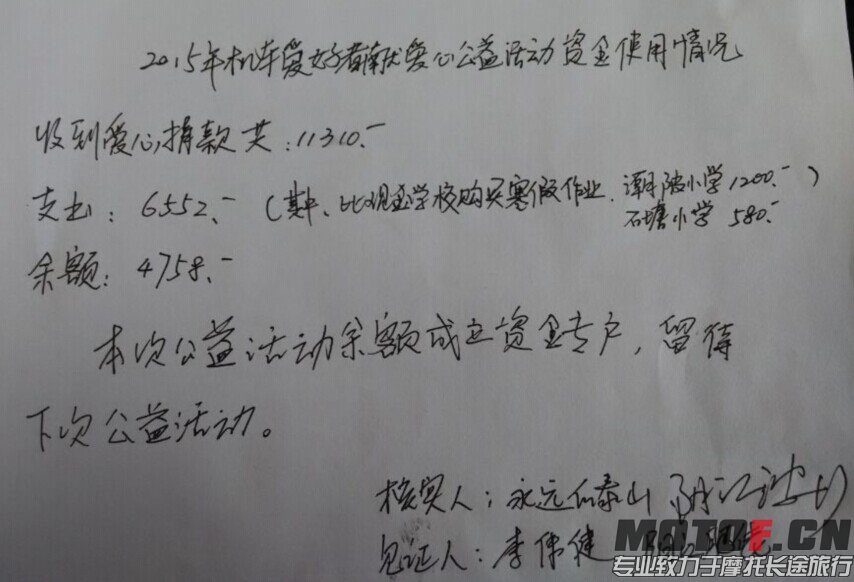 2015年机车爱好者献爱心公益活动资金使用情况
收到爱心捐款共:11310.-
支出:6552.-(其中、比现金学校购买寒假作业.潭陂小学1200.-)
石塘小学 580.-
余额:4758.-
本次公益活动余额成立资金专户,留待
下次公益活动。
核实人:永远的泰山 阳江
见证人:李伟健 阳江
MOTOF.CN
专业致力于摩托长途旅行